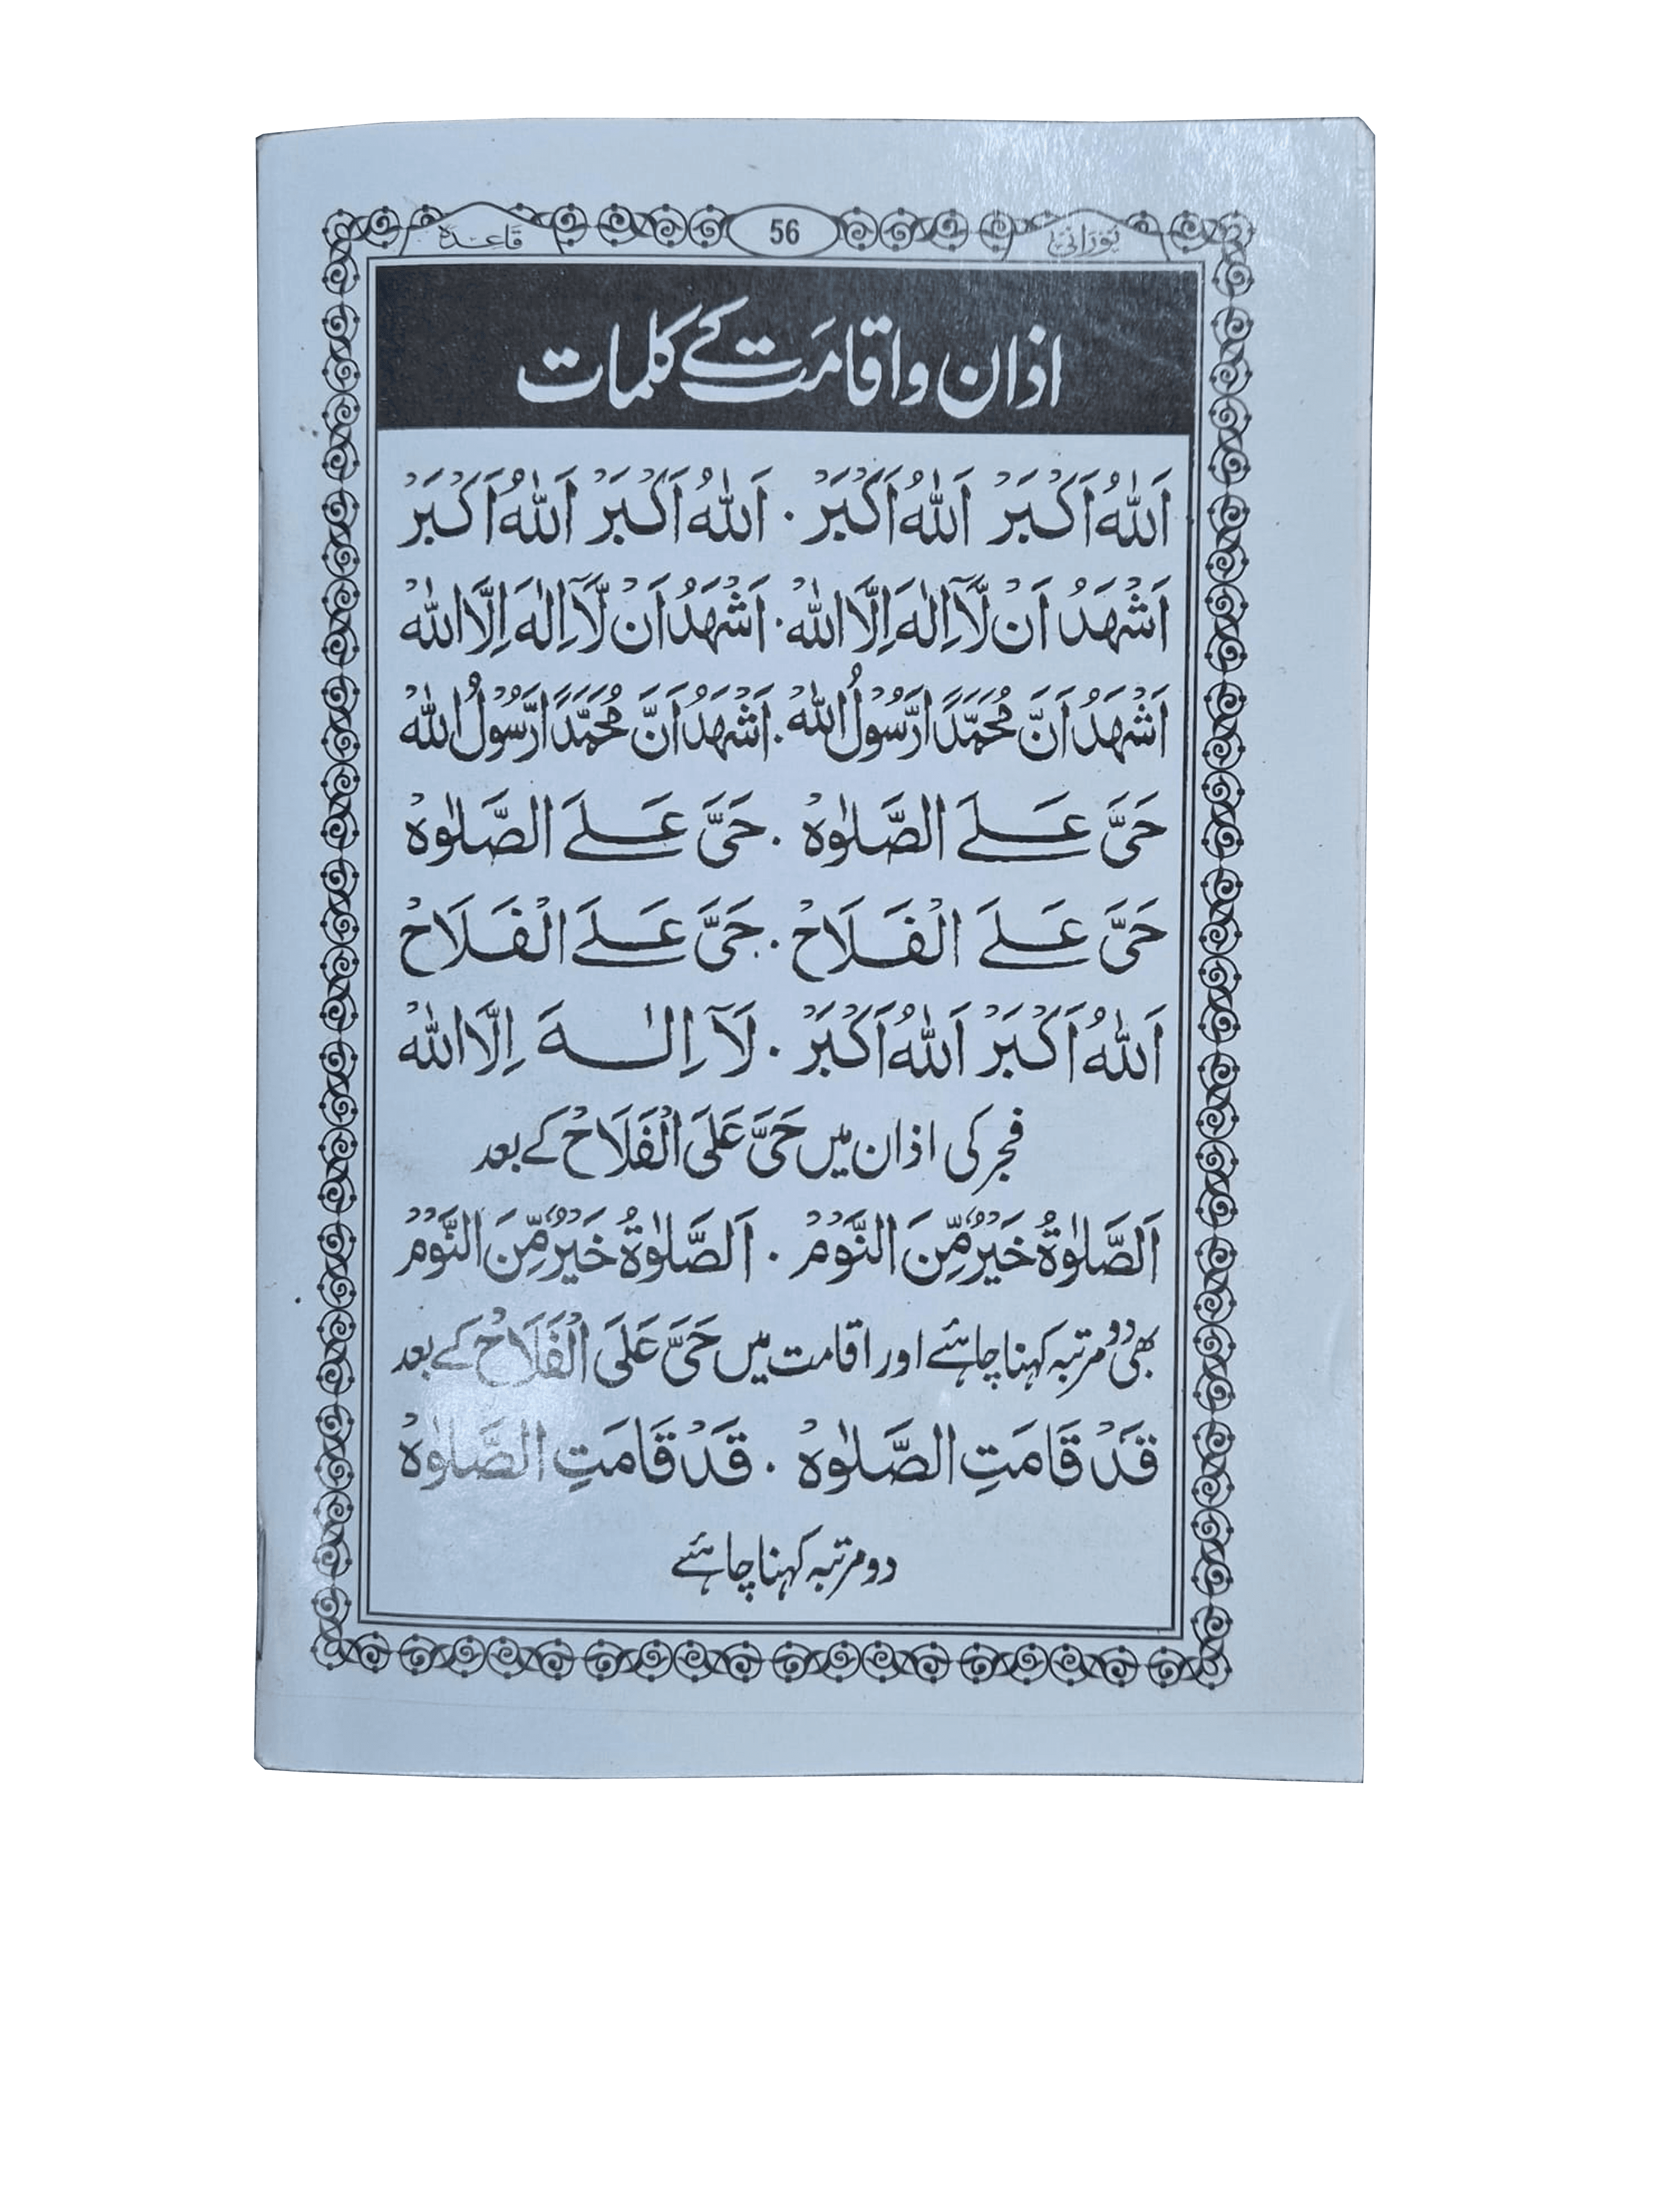 نورانی 56 قاعدہ
اذان واقامت کے کلمات
اَللّٰهُ اَكْبَرْ اَللّٰهُ اَكْبَرْ . اَللّٰهُ اَكْبَرْ اَللّٰهُ اَكْبَرْ
اَشْهَدُ اَنْ لَّآ اِلٰهَ اِلَّا اللّٰهْ . اَشْهَدُ اَنْ لَّآ اِلٰهَ اِلَّا اللّٰهْ
اَشْهَدُ اَنَّ مُحَمَّدًا رَّسُوْلُ اللّٰهْ . اَشْهَدُ اَنَّ مُحَمَّدًا رَّسُوْلُ اللّٰهْ
حَیَّ عَلَے الصَّلٰوهْ . حَیَّ عَلَے الصَّلٰوهْ
حَیَّ عَلَے الْفَلَاحْ . حَیَّ عَلَے الْفَلَاحْ
اَللّٰهُ اَكْبَرْ اَللّٰهُ اَكْبَرْ . لَآ اِلٰهَ اِلَّا اللّٰهْ
فجر کی اذان میں حَیَّ عَلَی الْفَلَاحْ کے بعد
اَلصَّلٰوةُ خَيْرٌ مِّنَ النَّوْمْ . اَلصَّلٰوةُ خَيْرٌ مِّنَ النَّوْمْ
بھی دو مرتبہ کہنا چاہئے اور اقامت میں حَیَّ عَلَی الْفَلَاحْ کے بعد
قَدْ قَامَتِ الصَّلٰوهْ . قَدْ قَامَتِ الصَّلٰوهْ
دو مرتبہ کہنا چاہئے